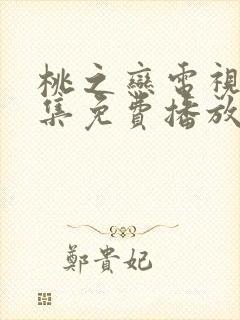 桃之戀電視
集免費播放
鄭貴妃